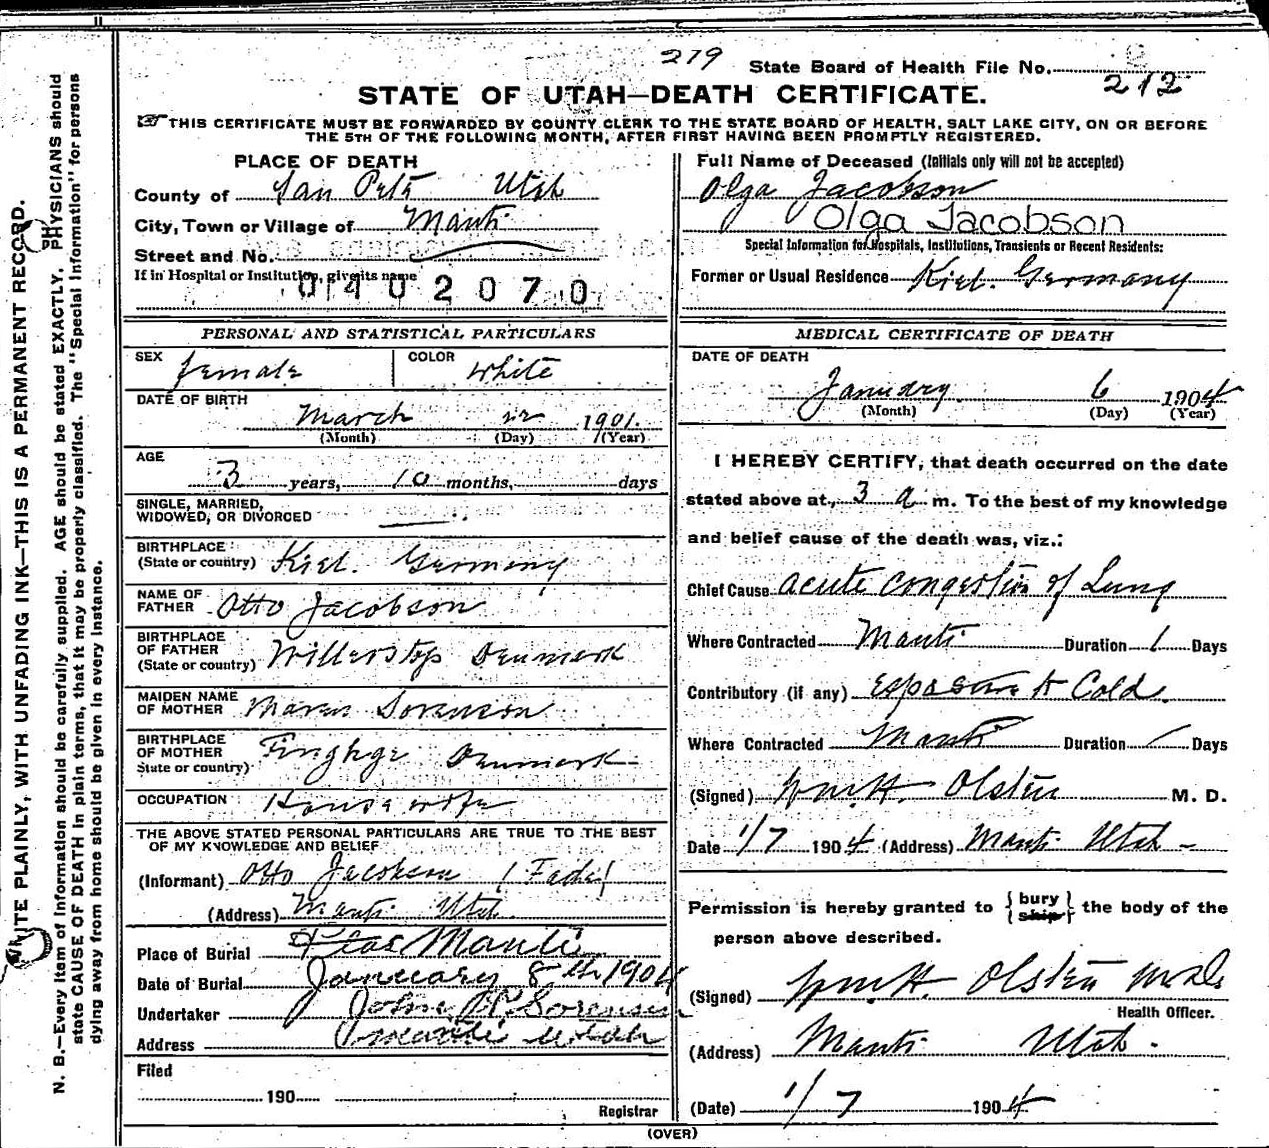 279 State Board of Health File No. 212
STATE OF UTAH—DEATH CERTIFICATE.
THIS CERTIFICATE MUST BE FORWARDED BY COUNTY CLERK TO THE STATE BOARD OF HEALTH, SALT LAKE CITY, ON OR BEFORE
THE 5TH OF THE FOLLOWING MONTH, AFTER FIRST HAVING BEEN PROMPTLY REGISTERED.
PLACE OF DEATH
County of San Pete Utah
City, Town or Village of Manti
Street and No.
If in Hospital or Institution, give its name
0402070
PERSONAL AND STATISTICAL PARTICULARS
SEX female COLOR White
DATE OF BIRTH
March 22 1901.
(Month) (Day) (Year)
AGE
3 years, 10 months, days
SINGLE, MARRIED,
WIDOWED, OR DIVORCED
BIRTHPLACE
(State or country) Kiel. Germany
NAME OF
FATHER Otto Jacobson
BIRTHPLACE
OF FATHER
(State or country) Willerstop Denmark
MAIDEN NAME
OF MOTHER Maren Sorenson
BIRTHPLACE
OF MOTHER
State or country) Denmark
OCCUPATION Housewife
THE ABOVE STATED PERSONAL PARTICULARS ARE TRUE TO THE BEST
OF MY KNOWLEDGE AND BELIEF
(Informant) Otto Jacobson
(Address) Manti Utah
Place of Burial Manti
Date of Burial January 8th 1904
Undertaker John P. Sorensen
Address Manti Utah
Filed
190
Registrar
Full Name of Deceased (Initials only will not be accepted)
Olga Jacobson
Olga Jacobson
Special Information for Hospitals, Institutions, Transients or Recent Residents:
Former or Usual Residence Kiel. Germany
MEDICAL CERTIFICATE OF DEATH
DATE OF DEATH
January 6 1904
(Month) (Day) (Year)
I HEREBY CERTIFY, that death occurred on the date
stated above at, 3 a m. To the best of my knowledge
and belief cause of the death was, viz.:
Chief Cause acute congestion of Lung
Where Contracted Manti Duration 1 Days
Contributory (if any) Exposure to Cold
Where Contracted Manti Duration 1 Days
(Signed) Wm. H. Olsten M. D.
Date 1/7 1904 (Address) Manti Utah
Permission is hereby granted to {bury ship} the body of the
person above described.
(Signed) Wm. H. Olsten
Health Officer.
(Address) Manti Utah.
(Date) 1/7 1904
(OVER)
WRITE PLAINLY, WITH UNFADING INK—THIS IS A PERMANENT RECORD.
N. B.—Every item of information should be carefully supplied. AGE should be stated EXACTLY. PHYSICIANS should
state CAUSE OF DEATH in plain terms, that it may be properly classified. The "Special Information" for persons
dying away from home should be given in every instance.